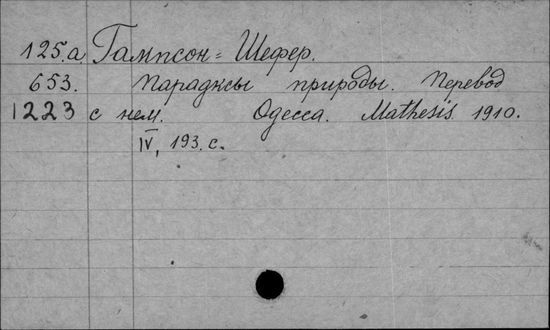 125.а Гампсон-Шефер.
653. Парадксы природы. Перевод
1223 с нем. Одесса. Mathesis 1910.
IV, 193. с.